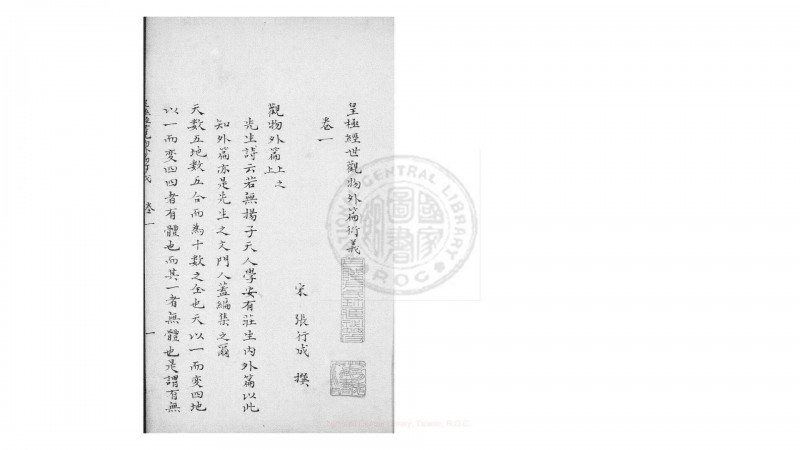 皇極經世觀物外篇衍義
卷一
宋 張行成 撰
觀物外篇上之上
先生詩云若無揚子天人學安有莊生內外篇以此
知外篇亦是先生之文門人蓋編集之爾
天數五地數五合而為十數之全也天以一而變四地
以一而變四四者有體也而其一者無體也是謂有無
卷一
一
NATIONAL CENTRAL LIBRARY
國家圖書館
R.O.C.